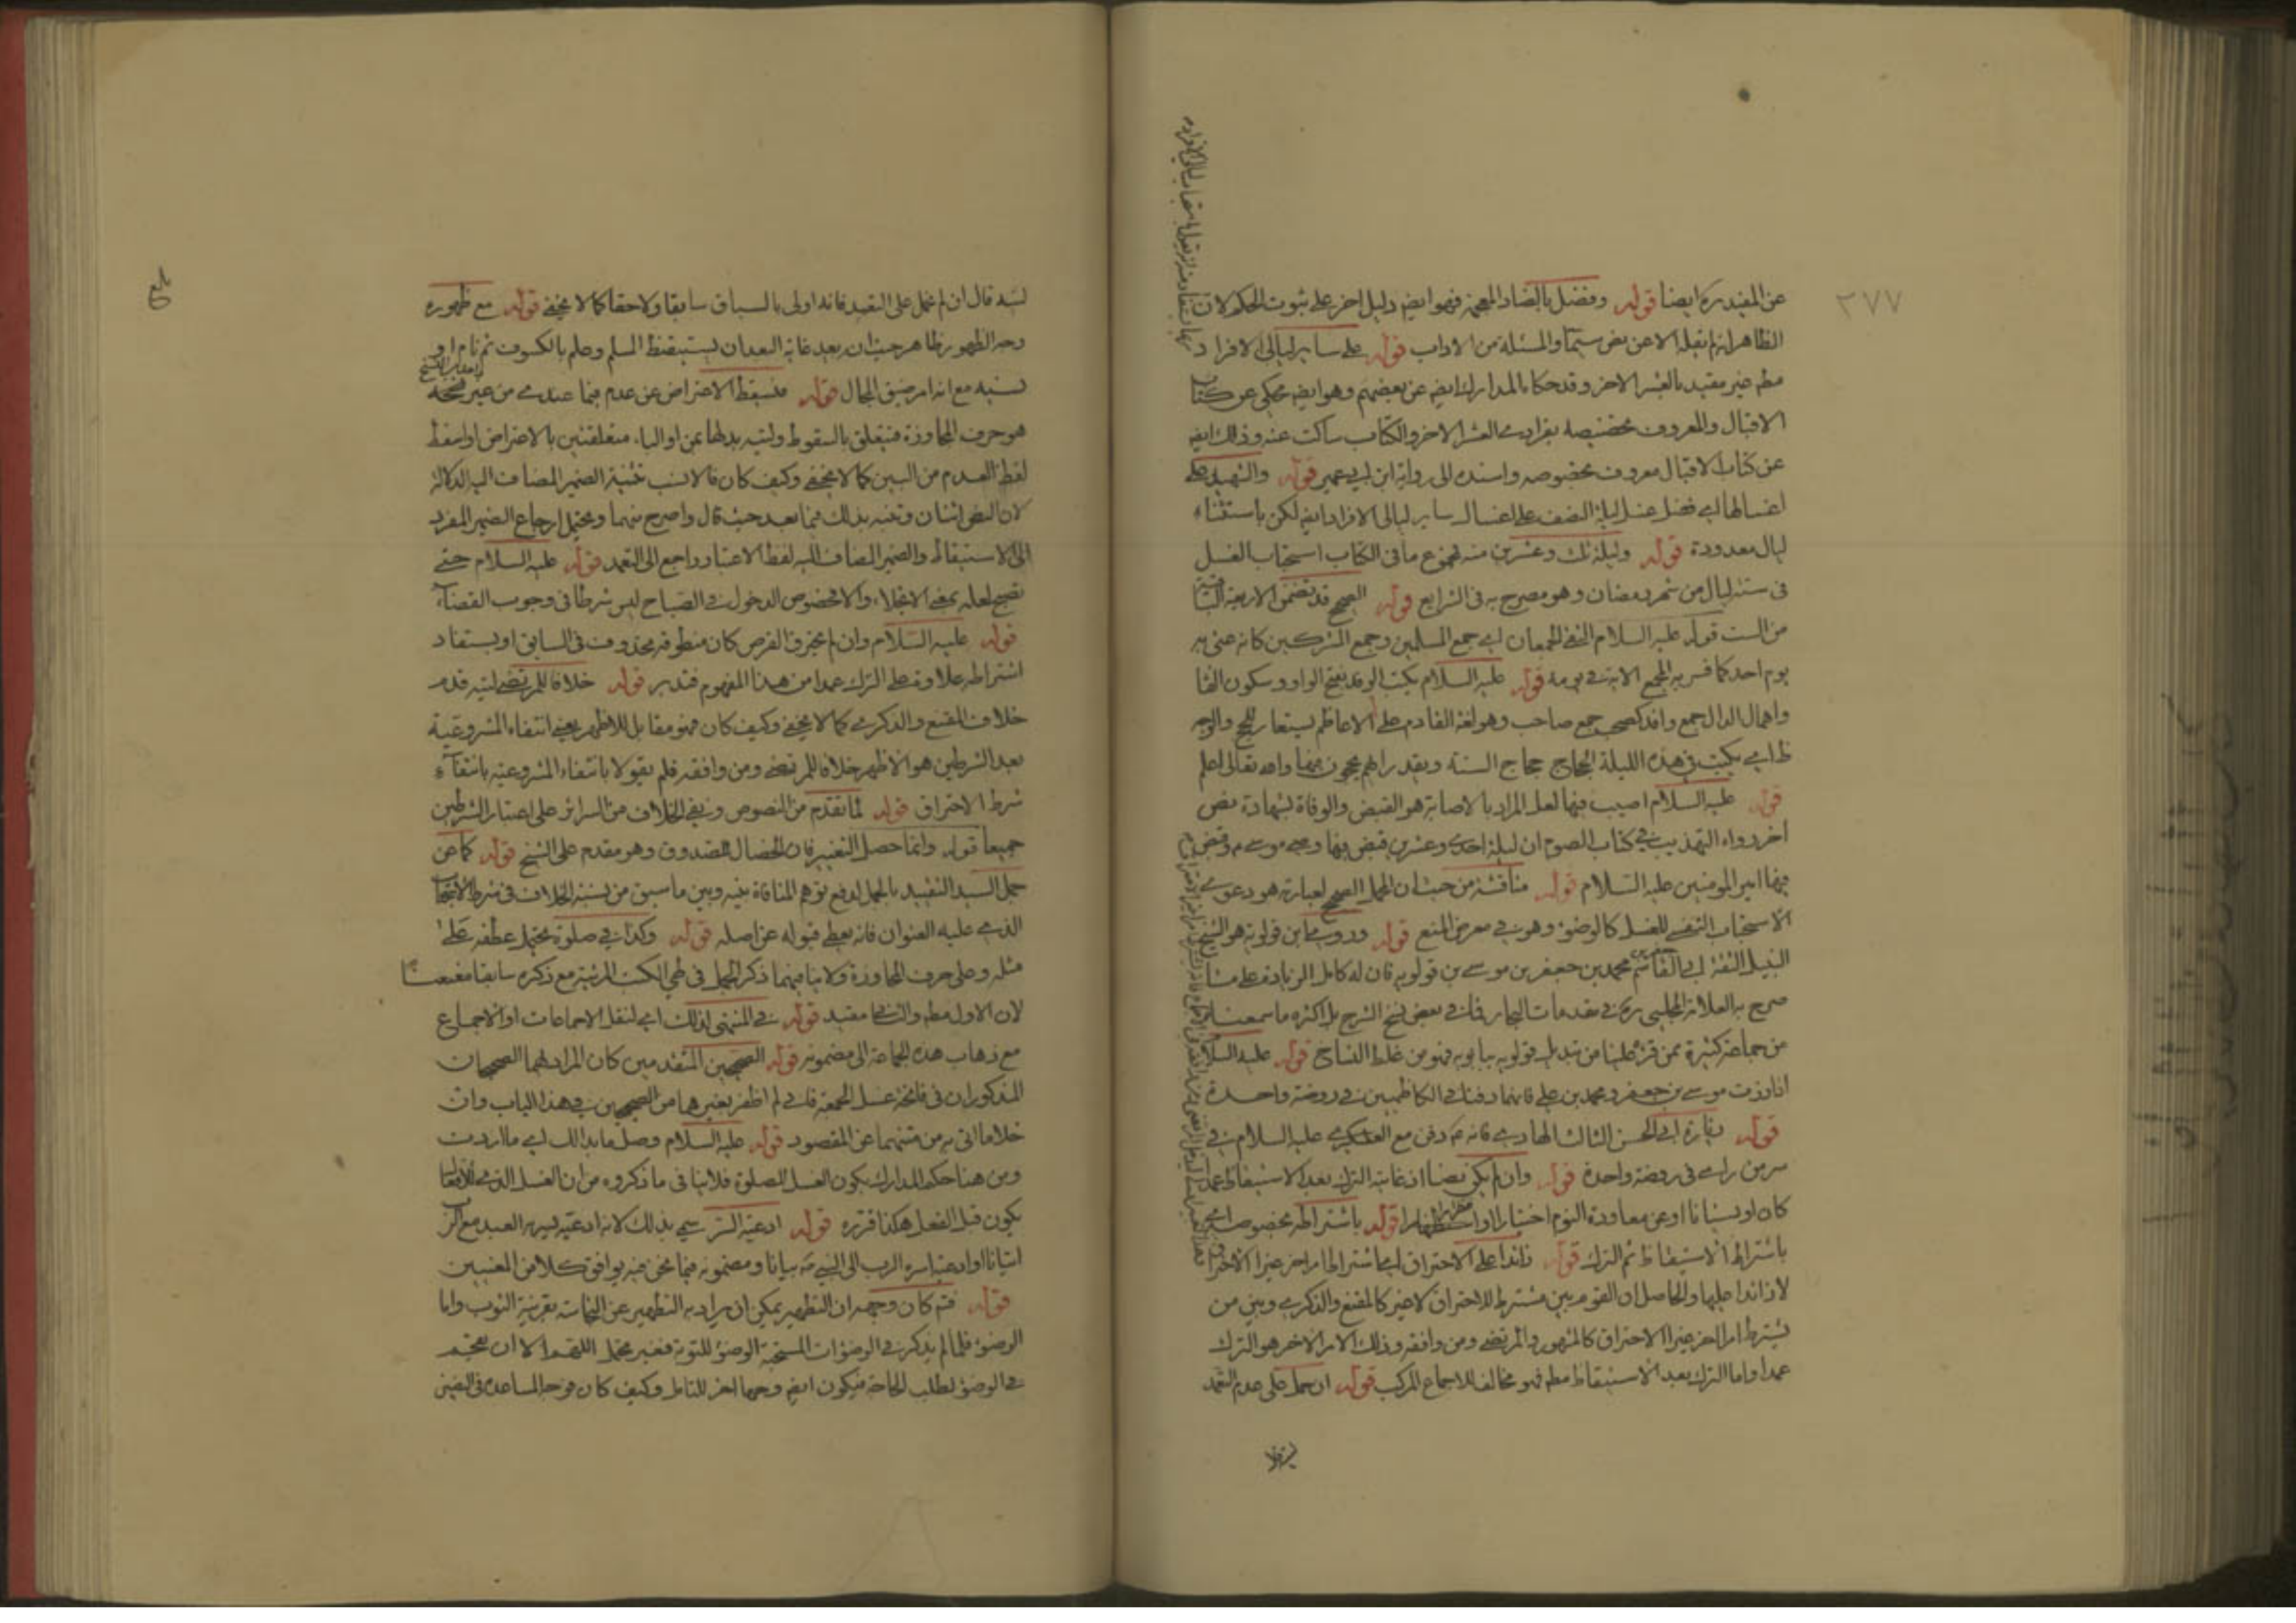 ٢٧٧
عن المفيد ره ايضا قوله وفضل بالضاد المعجمة فهو ايضا دليل اخر على ثبوت الحكم لان
الظاهر انه لم ينقله الا عن نص سيما والمسئلة من الاداب قوله على ساير ليالى الافراد
مطم غير مقيد بالعشر الاخر وقد حكاه المدارك ايضا عن بعضهم وهو ايضا محكى عن كتاب
الاقبال والمعروف تخصيصه بفرادى العشر الاخر والكتاب ساكت عنه وذلك ايضا
عن كتاب الاقبال معروف بخصوصه واسنده الى رواية ابن ابى عمير قوله والشهيد على
اغسالها اى فضل غسل ليلة النصف على اغسال ساير ليالى الافراد ايضا لكن باستثناء
ليال معدودة قوله وليلة ثلث وعشرين منه فمجموع ما فى الكتاب استحباب الغسل
فى ستة ليال من شهر رمضان وهو مصرح به فى الشرايع قوله الصحيح قد تضمن الاربعة
من الست قوله عليه السلام التقى الجمعان اى جمع المسلمين وجمع المشركين كانه عنى به
يوم احد كما فسر به الجمع الاية فى يومه قوله عليه السلام يكتب الوفد بفتح الواو وسكون الفا
واهمال الدال جمع وافد كصحب جمع صاحب وهو لغة القادم على الاعاظم يستعار للحج والوجه
ظ اى يكتب فى هذه الليلة الحجاج حجاج السنة ويقدر انهم يحجون فيها والله تعالى اعلم
قوله عليه السلام اصيب فيها لعل المراد بالاصابة هو القبض والوفاة لشهادة نص
اخر رواه التهذيب فى كتاب الصوم ان ليلة احدى وعشرين قبض فيها وصى موسى م وقبض
فيها امير المومنين عليه السلام قوله مناقشة من حيث ان المحمل الصحيح لعبارته هو دعوى
الاستحباب النفسى للغسل كالوضوء وهو فى معرض المنع قوله وروى ابن قولويه هو الشيخ
النبيل الثقة ابى القاسم محمد بن جعفر بن موسى بن قولويه فان له كامل الزيادة على ما
صرح به العلامة المجلسى ره فى مقدمات البحار فما فى بعض نسخ الشرح بل اكثره ما سمعناه
من جماعة كثيرة ممن قرء علينا من تبديل قولويه ببابويه فهو من غلط النساخ قوله عليه السلام
اذا زرت موسى بن جعفر ومحمد بن على فانهما دفنا فى الكاظمين فى روضة واحدة
قوله زيارة ابى الحسن الثالث الهادى فانه م دفن مع العسكرى عليه السلام فى
سر من راى فى روضة واحدة قوله وان لم يكن نصا اذ غايته الترك بعد الاستيقاظ عمدا
كان او نسيانا او عن معاودة النوم اختيارا او اضطرارا قوله باشتراطه بخصوصه اى
باشتراط الاستيقاظ ثم الترك قوله زائدا على الاحتراق اى باشتراط امر اخر غير الاحتراق
لا زائدا عليها والحاصل ان القوم بين مشترط للاحتراق لا غير كالمقنع والذكرى وبين من
يشترط امرا اخر غير الاحتراق كالمشهور والمرتضى ومن وافقه وذلك الامر الاخر هو الترك
عمدا واما الترك بعد الاستيقاظ مطم فهو مخالف للاجماع المركب قوله ان حمل على عدم التعمد
بلغ
لسنده قال ان لم نحمل على التقييد فانه اولى بالسياق سابقا ولاحقا كما لا يخفى قوله مع ظهوره
وجه الظهور ظاهر حيث ان بعد غاية البعد ان يستيقظ المسلم وعلم بالكسوف ثم نام او
نسيه مع انه امر ضيق المجال قوله فسقط الاعتراض عن عدم فيما عندى من غير نسخة
هو حرف المجاوزة فيتعلق بالسقوط وليته بدلها بمن او الباء متعلقتين بالاعتراض او اسقط
لفظ العدم من البين كما لا يخفى وكيف كان فالانسب تثنية الضمير المضاف اليه الدلالة
لان النص اثنان وتنبه بذلك فيما بعد حيث قال واصرح منهما ويحتمل ارجاع الضمير المفرد
الى الاستيقاظ والضمير المضاف اليه لفظ الاعتبار راجع الى التعمد قوله عليه السلام حتى
تصبح لعله بمعنى الانجلاء والا فخصوص الدخول فى الصباح ليس شرطا فى وجوب القضاء
قوله عليه السلام وان لم يحترق القرص كان منطوقه محذوف فى السابق او يستفاد
اشتراطه علاوة على الترك عمدا من هذا المفهوم فتدبر قوله خلافا للمرتضى ليته قدم
خلاف المقنع والذكرى كما لا يخفى وكيف كان فهو مقابل للاظهر يعنى انتفاء المشروعية
بعد الشرطين هو الاظهر خلافا للمرتضى ومن وافقه فلم يقولا بانتفاء المشروعية بانتفاء
شرط الاحتراق قوله لما تقدم من النصوص ونفى الخلاف من السرائر على اعتبار الشرطين
جميعا قوله وانما حصل التغيير فان الخصال للصدوق وهو مقدم على الشيخ قوله كما عن
جمل السيد التقييد بالجمل لدفع توهم المنافاة بينه وبين ما سبق من نسبة الخلاف فى شرط الاستحباب
الذى عليه العنوان فانه يعطى قبوله عن اصله قوله وكذا فى صلوة يحتمل عطفه على
مثله وعلى حرف المجاوزة ولا ينافيهما ذكر الجمل فى طى الكتب المرتبة مع ذكره سابقا
لان الاول مطم والثانى مقيد قوله فى المنتهى لذلك اى لنقل الاجماعات او الاجماع
مع ذهاب هذه الجماعة الى مضمونه قوله الصحيحين المتقدمين كان المراد بهما الصحيحان
المذكوران فى فاتحة غسل الجمعة فانى لم اظفر بغيرهما من الصحيحين فى هذا الباب وان
خلا ما اتى به من متنهما عن المقصود قوله عليه السلام وصل ما بدا لك اى ما اردت
ومن هنا حكم المدارك بكون الغسل للصلوة فلا ينافى ما ذكروه من ان الغسل الذى للافعال
يكون قبل الفعل هكذا قرره قوله ادعية السر سمى بذلك لانه ادعية ليسره العبد مع الرب
اتيانا او ادعية اسره الرب الى النبى ص بيانا ومضمونه فيما نحن فيه يوافق كلا من المعنيين
قوله فتم كان وجهه ان التطهير يمكن ان يراد به التطهير عن النجاسة بقرينة الثوب واما
الوضوء فلما لم يذكر فى الوضوات المستحبة الوضوء للتوبة فغير محتمل اللهم الا ان يعتبر
فى الوضوء لطلب الحاجة فيكون ايضا وجها اخر للتامل وكيف كان فوجه المساعدة فى